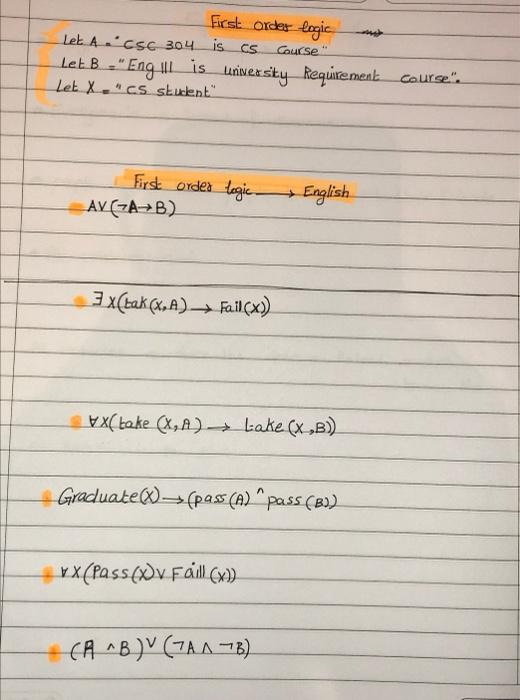 First order logic →
Let A = "CSC 304 is CS Course"
Let B = "Eng 111 is university Requirement course".
Let X = "CS student"
First order logic → English
AV(¬A→B)
∃X(tak(X,A) → Fail(X))
∀X(take (X,A) → take (X,B))
Graduate(X) → (pass(A) ^ pass (B))
∀X(Pass(X)∨ Faill (X))
(A ∧B)∨(¬A ∧ ¬B)